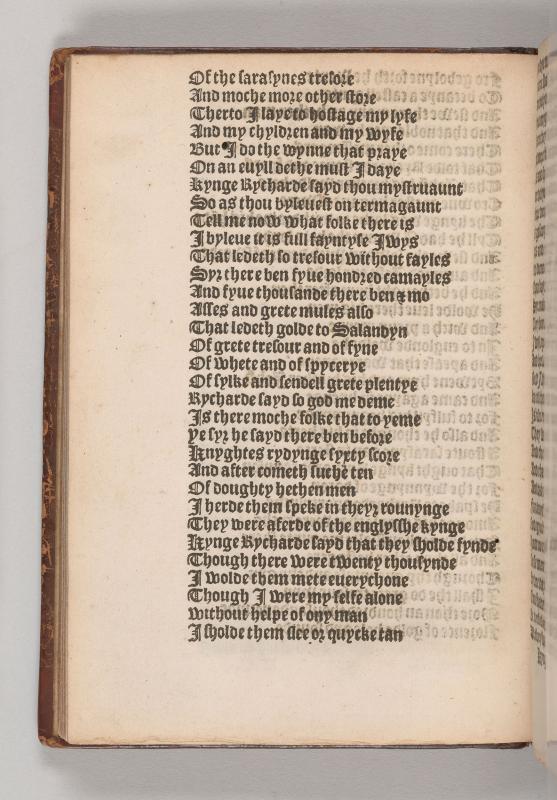 Of the sarasynes tresore
And moche more other store
Therto I laye to hostage my lyfe
And my chyldren and my wyfe
But I do the wynne that praye
On an euyll dethe must I daye
Kynge Rycharde sayd thou mystruaunt
So as thou byleuest on termagaunt
Tell me now what folke there is
I byleue it is full fayntyse I wys
That ledeth so tresour without fayles
Syr there ben fyue hondred camayles
And fyue thousande there ben & mo
Asses and grete mules also
That ledeth golde to Salandyn
Of grete tresour and of fyne
Of whete and of spycerye
Of sylke and sendell grete plentye
Rycharde sayd so god me deme
Is there moche folke that to yeme
Ye syr he sayd there ben before
Knyghtes rydynge syxty score
And after cometh suche ten
Of doughty hethen men
I herde them speke in theyr rounynge
They were aferde of the englysshe kynge
Kynge Rycharde sayd that they sholde fynde
Though there were twenty thousynde
I wolde them mete euerychone
Though I were my selfe alone
without helpe of ony man
I sholde them slee or quycke tan